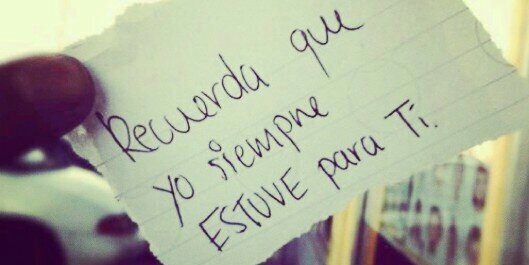 Recuerda que
yo siempre
ESTUVE para Ti.